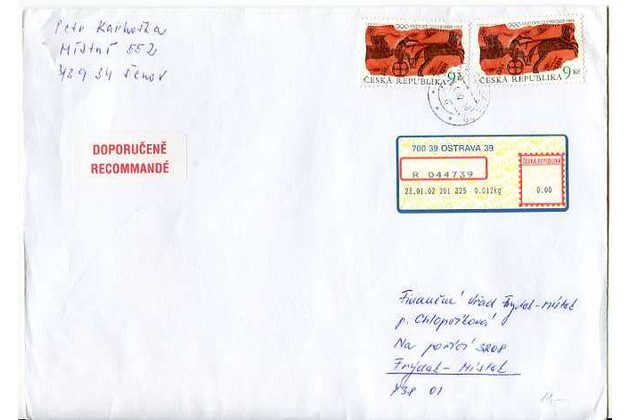 Petr Karhoška
Místní 552
739 34 Šenov
DOPORUČENĚ
RECOMMANDÉ
ČESKÁ REPUBLIKA 9 Kč
ČESKÁ REPUBLIKA 9 Kč
700 39 OSTRAVA 39
ČESKÁ REPUBLIKA
R 044739
0.00
23.01.02 201 325 0.012kg
Finanční úřad Frýdek-Místek
p. Chlopčíková
Na poříčí 3208
Frýdek-Místek
738 01